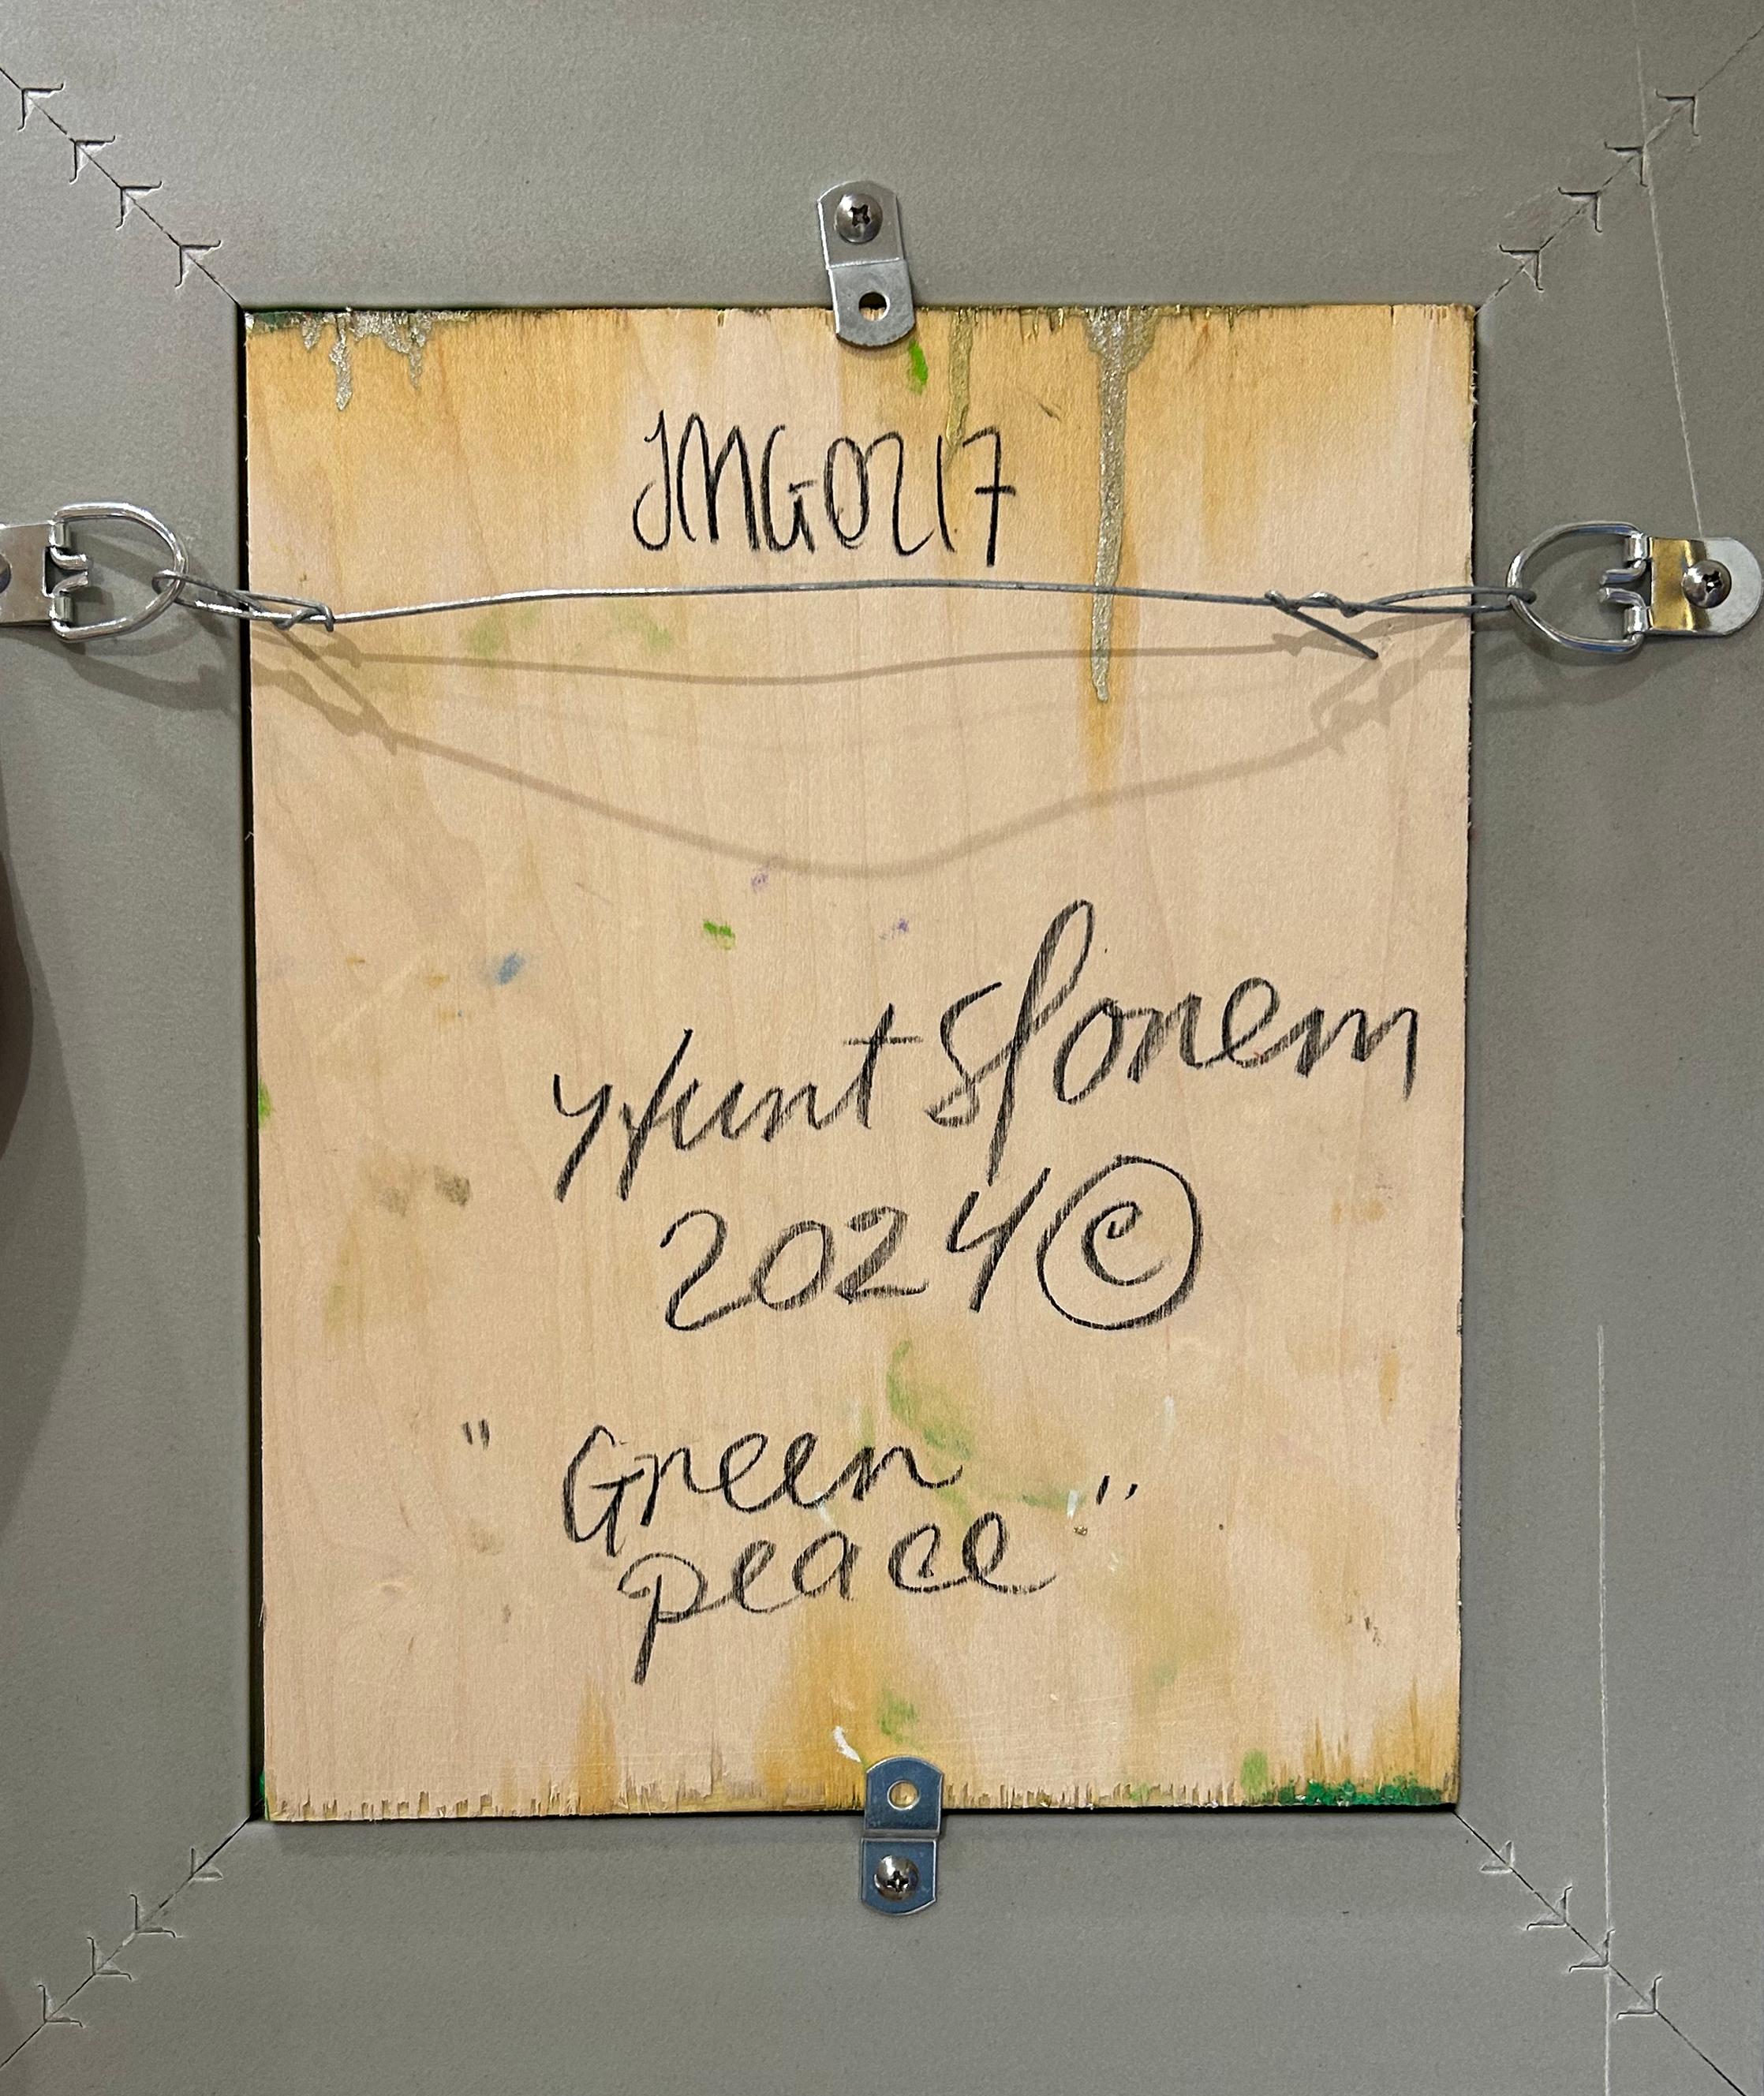 JMG0217
Hunt Slonem
2024 ©
"Green
peace"